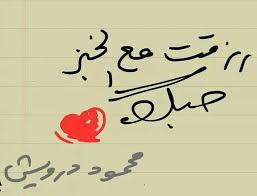 رزقت مع الخبز
حبك
محمود درويش